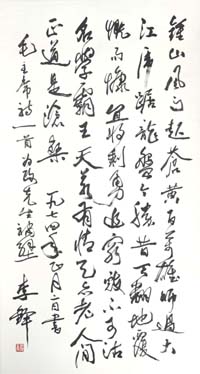 鍾山風雨起蒼黃百萬雄師過大
江虎踞龍盤今勝昔天翻地覆
慨而慷宜將剩勇追窮寇不可沽
名學霸王天若有情天亦老人間
正道是滄桑 一九七四年正月日書
毛主席詩一首 为政先生補壁 李鐸